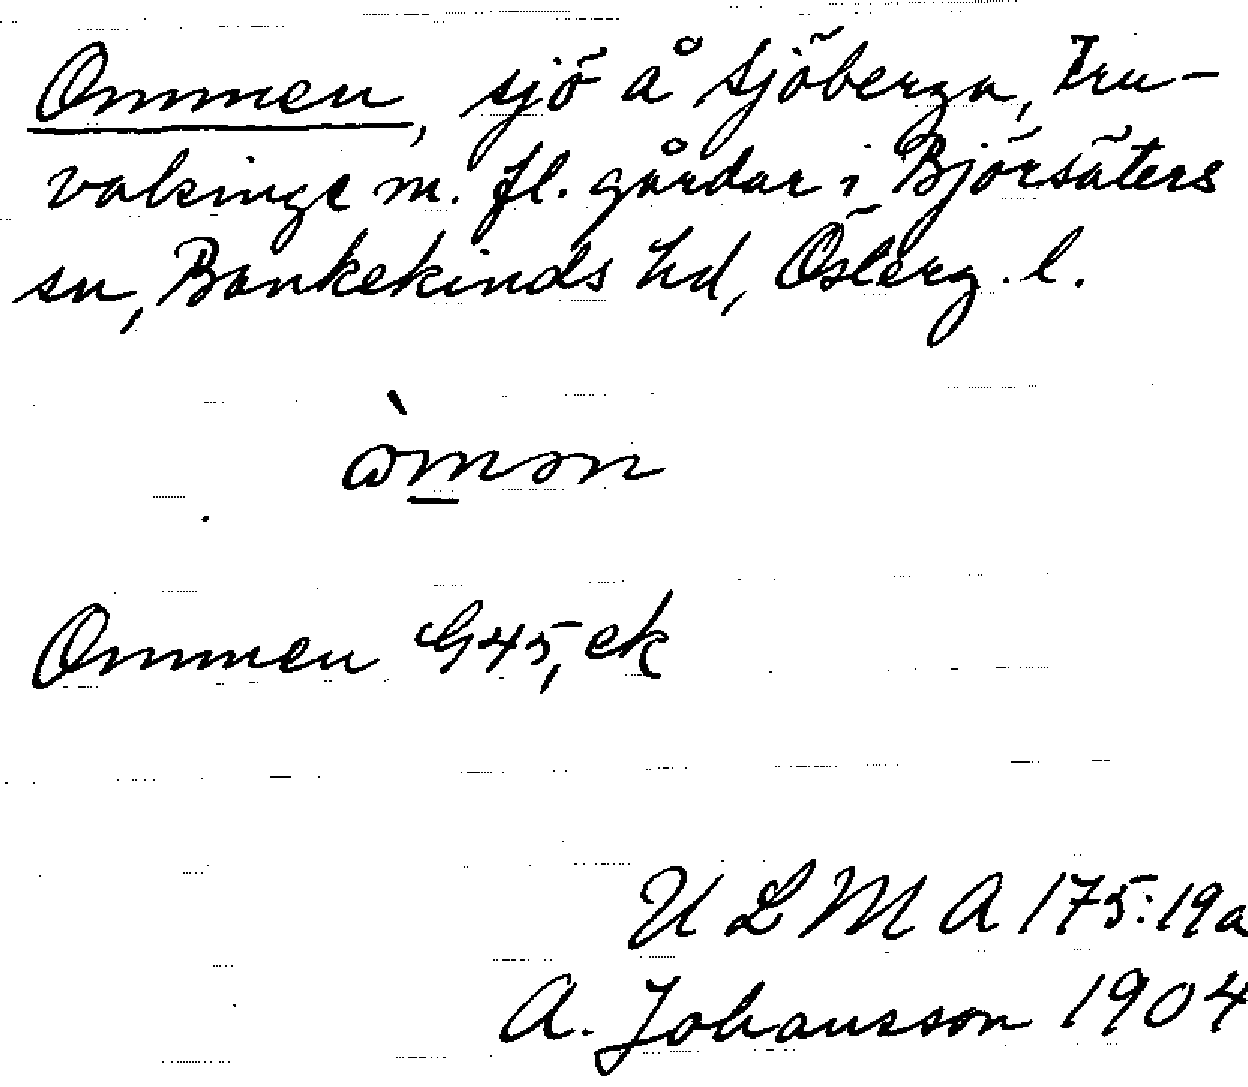 Ommen, sjö å Sjöberga, Tru-
valsinge m. fl. gårdar i Björsäters
sn, Bankekinds hd, Österg. l.
òmən
Ommen G45, ek
ULMA 175:19a
A. Johansson 1904